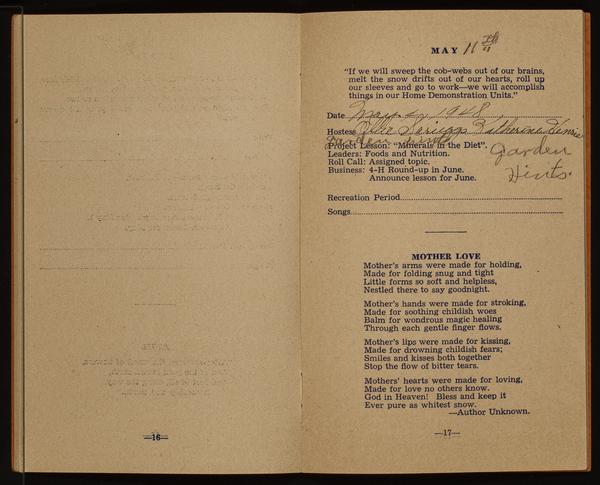 —16—
MAY 11th
"If we will sweep the cob-webs out of our brains,
melt the snow drifts out of our hearts, roll up
our sleeves and go to work—we will accomplish
things in our Home Demonstration Units."
Date May 1948
Hostess Ollie Scruggs Katherine
Garden Hints
Project Lesson: "Minerals in the Diet".
Garden
Leaders: Foods and Nutrition.
Roll Call: Assigned topic.
Hints.
Business: 4-H Round-up in June.
Announce lesson for June.
Recreation Period
Songs
MOTHER LOVE
Mother's arms were made for holding,
Made for folding snug and tight
Little forms so soft and helpless,
Nestled there to say goodnight.
Mother's hands were made for stroking,
Made for soothing childish woes
Balm for wondrous magic healing
Through each gentle finger flows.
Mother's lips were made for kissing,
Made for drowning childish fears;
Smiles and kisses both together
Stop the flow of bitter tears.
Mothers' hearts were made for loving,
Made for love no others know.
God in Heaven! Bless and keep it
Ever pure as whitest snow.
—Author Unknown.
—17—